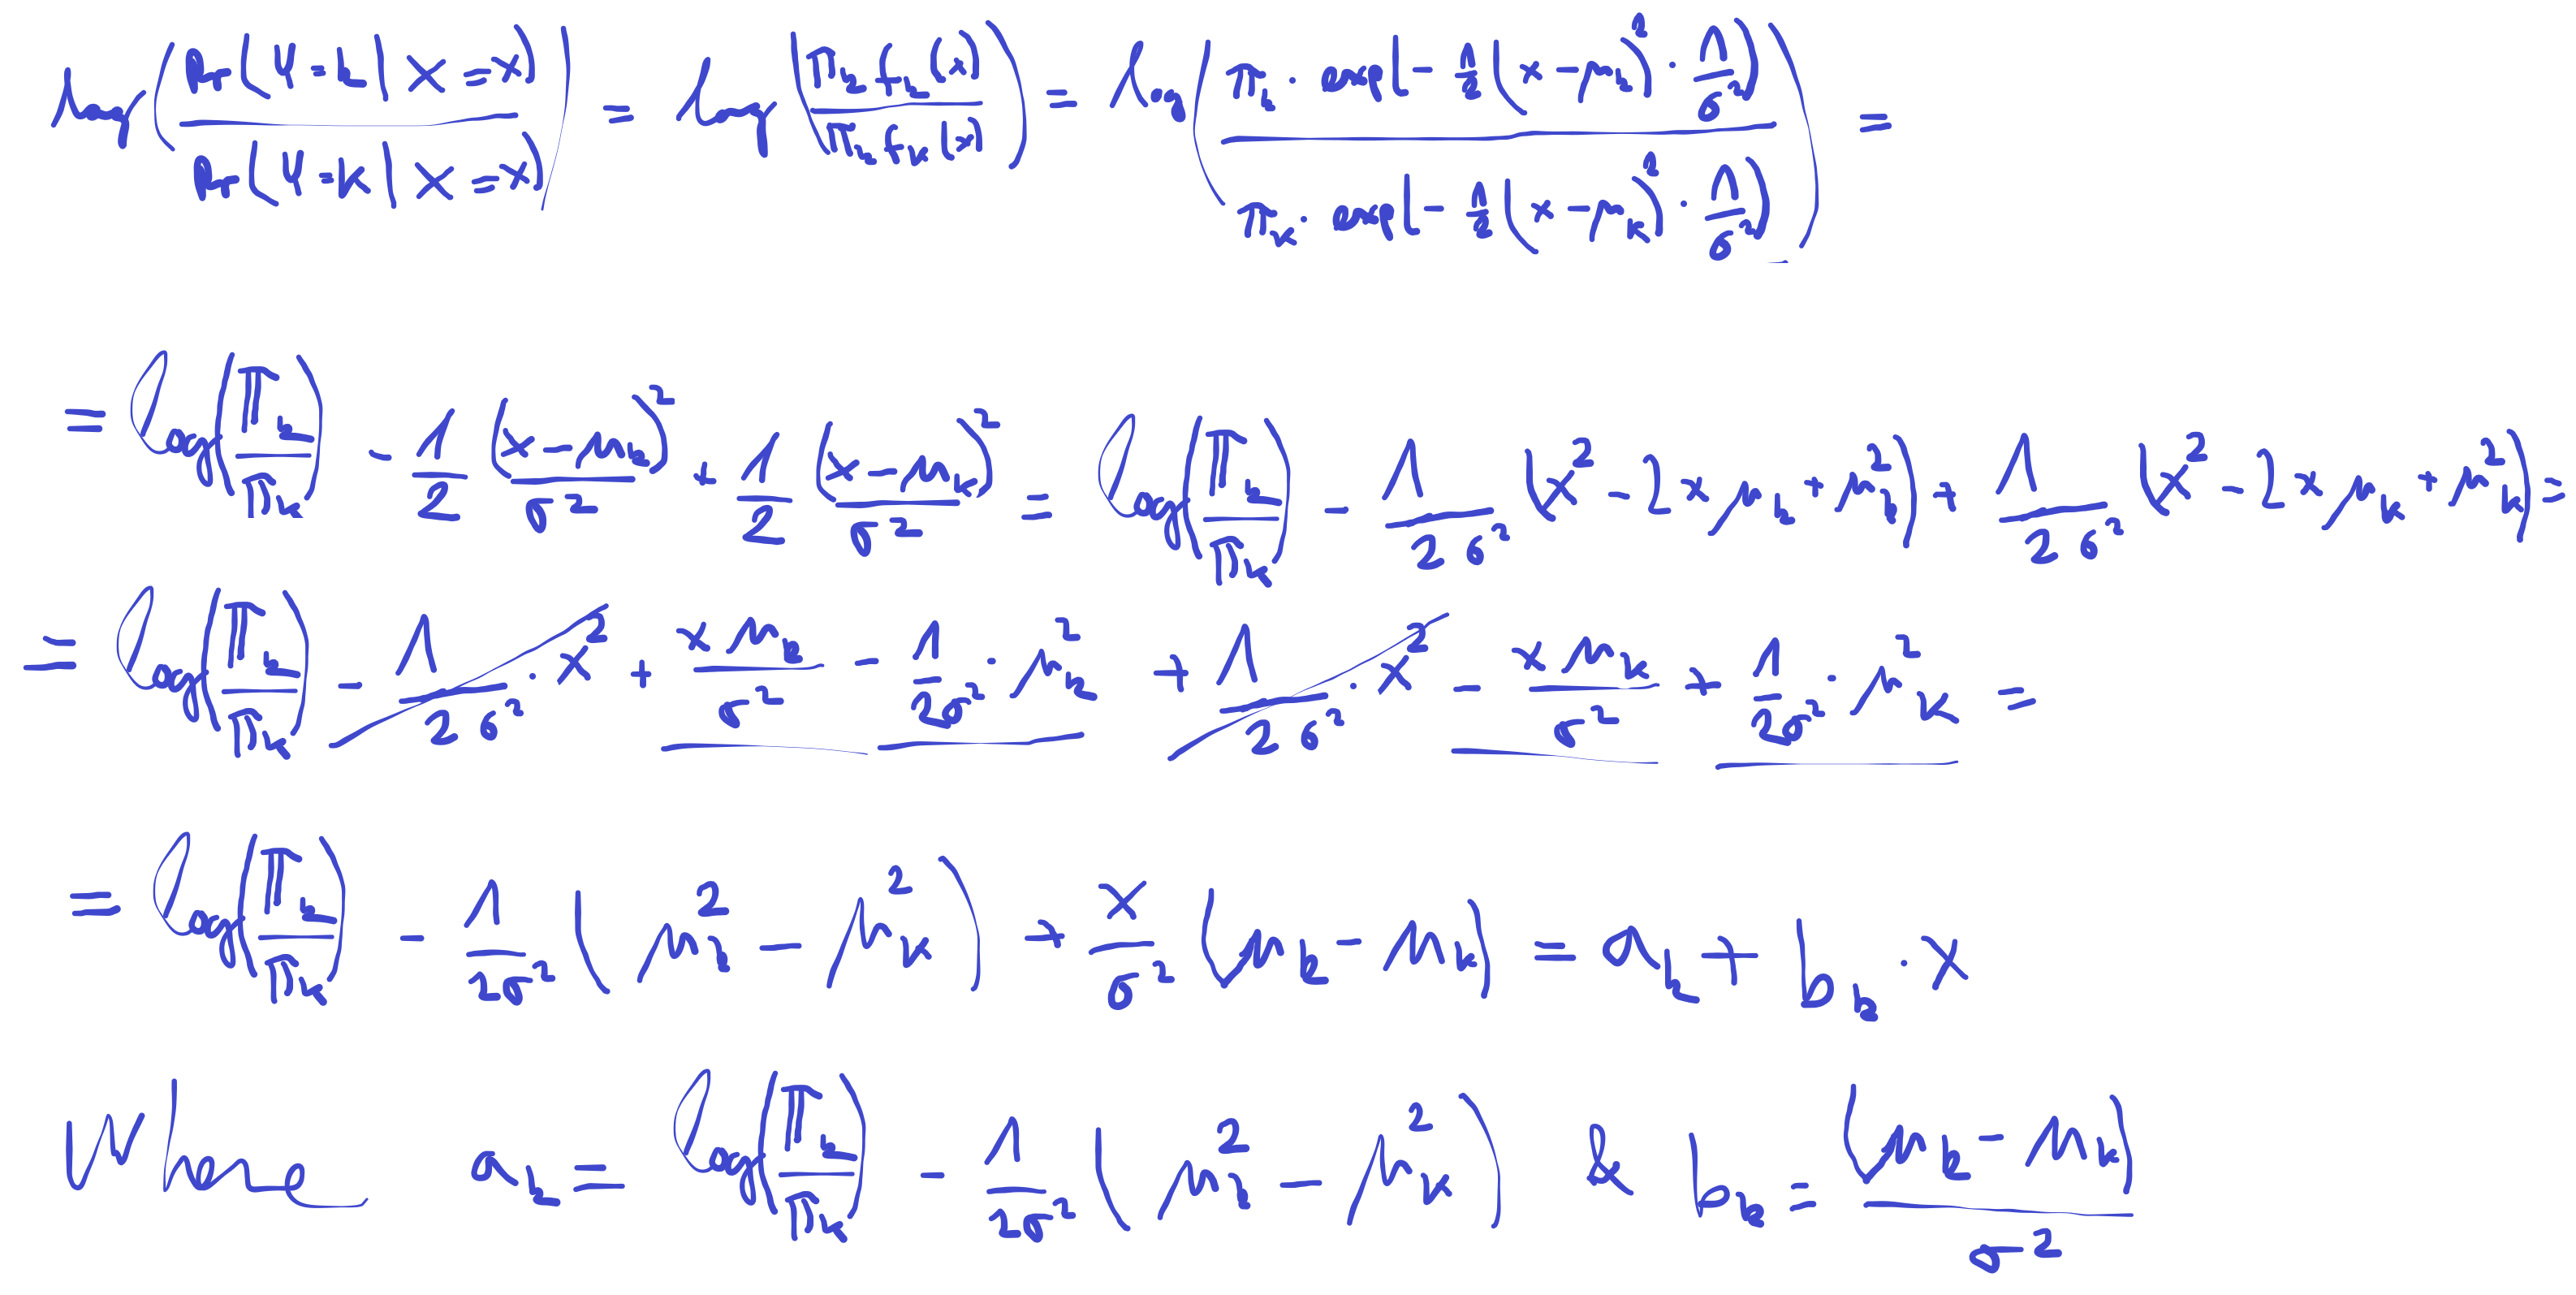 log(Pr(Y=k|X=x) / Pr(Y=K|X=x)) = log(π_k f_k(x) / π_k f_K(x)) = log(π_k · exp(-1/2 (x-μ_k)² · 1/σ²) / π_K · exp(-1/2 (x-μ_K)² · 1/σ²)) =
= log(π_k/π_K) - 1/2 (x-μ_k)²/σ² + 1/2 (x-μ_K)²/σ² = log(π_k/π_K) - 1/2σ² (x² - 2xμ_k + μ_k²) + 1/2σ² (x² - 2xμ_K + μ_K²) =
= log(π_k/π_K) - 1/2σ² · x² + xμ_k/σ² - 1/2σ² · μ_k² + 1/2σ² · x² - xμ_K/σ² + 1/2σ² · μ_K² =
= log(π_k/π_K) - 1/2σ² (μ_k² - μ_K²) + x/σ² (μ_k - μ_K) = a_k + b_k · x
Where a_k = log(π_k/π_K) - 1/2σ² (μ_k² - μ_K²) & b_k = (μ_k - μ_K)/σ²